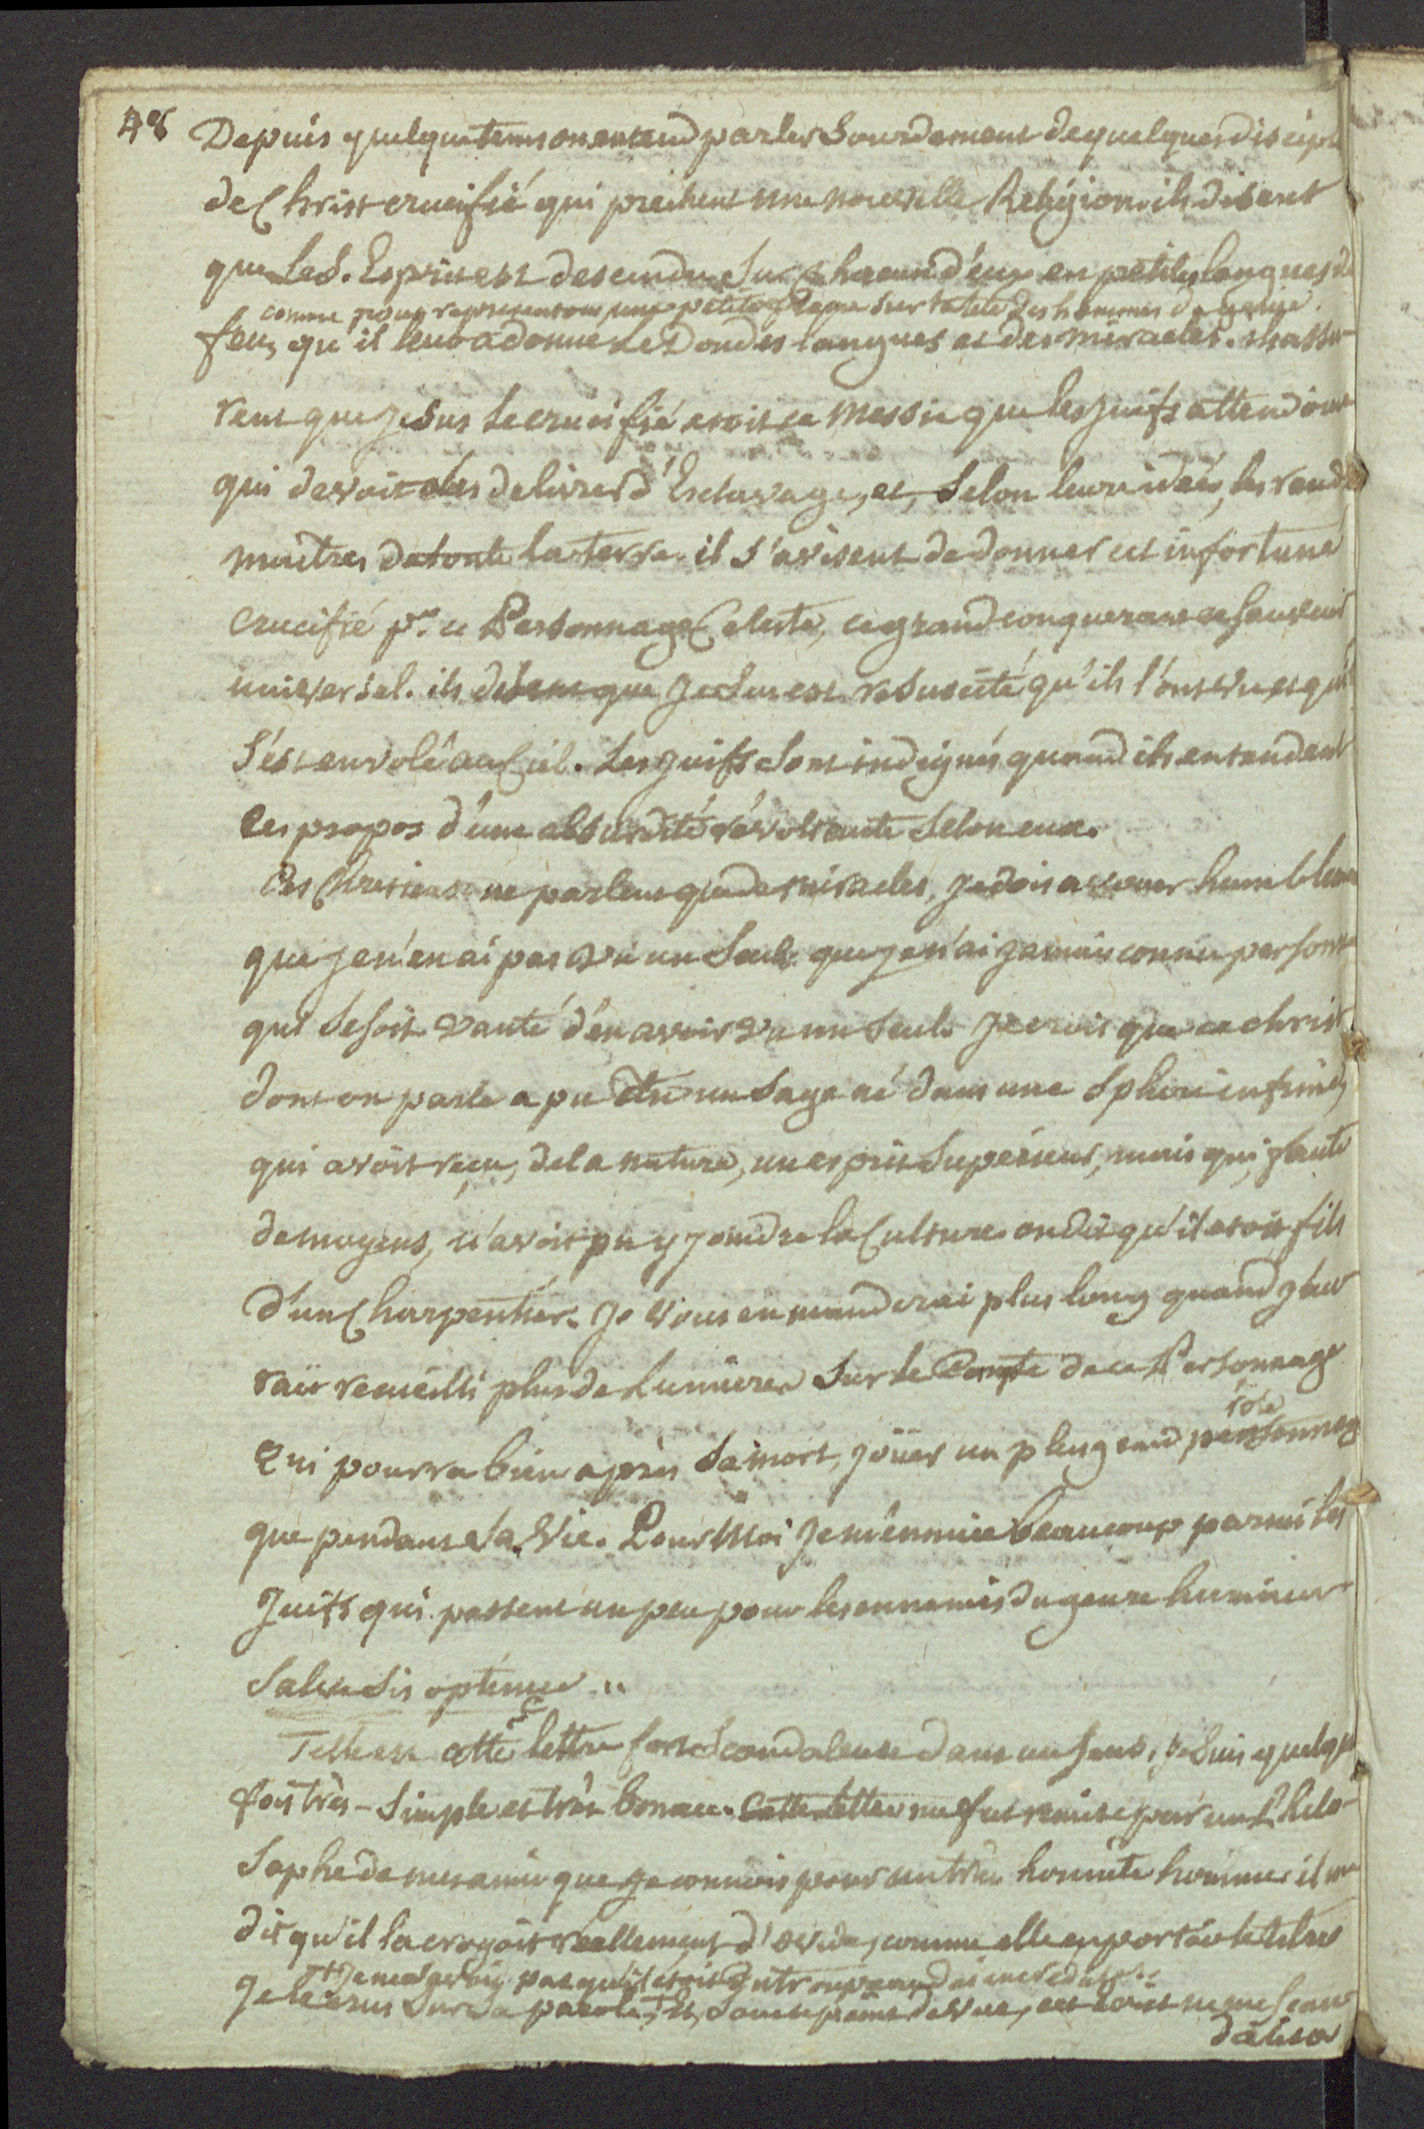 48 Depuis quelque tems on entend parler Sourdement de quelques discipl
de Christ crucifié qui prechent une nouvelle Religion. ils disent
que le S. Esprit est descendu Sur chacun d'eux en petites langues de
comme pour representer une petite flame sur la tête des hommes de genie.
feu, qu'il leur a donné le Don des langues et des miracles. ils assu-
rent que Jesus le crucifié etoit ce Messie que les juifs attendoient
qui devoit les delivrer d'Esclavage, et, Selon leur idée, les rendre
maitres de toute la terre. il s'avisent de donner cet infortuné
crucifié pr. ce Personnage Celeste, ce grand conquerant ce Sauveur
universel. ils disent que Jesus est resuscité qu'ils l'ont vu, et qu'il
S'est envolé au Ciel. Les juifs Sont indignés quand ils entendent
ces propos d'une absurdité révoltante Selon eux.
Ces Chretiens ne parlent que de miracles, je dois avouer humblement
que je n'en ai pas vu un Seul. que je n'ai jamais connu personne
qui Se soit vanté d'en avoir vu un Seul. je crois que ce christ
dont on parle a pu être un Sage né dans une Sphere infime,
qui avoit reçu, de la nature, un esprit Superieur, mais qui, faute
de moyens, n'avoit pu y joindre la Culture. on dit qu'il etoit fils
d'un Charpentier. Je vous en manderai plus long quand j'au-
rai recueilli plus de Lumieres Sur le Compte de ce Personnage
role
Qui pourra bien après Sa mort, jöuer un plus grand personnage
que pendant Sa Vie. Pour Moi je m'ennuie beaucoup parmi les
Juifs qui passent un peu pour les ennemis du genre humain
Salve Sis optime "
Telle est cette lettre fort Scandaleuse dans un Sens, Je Suis quelque
fois très-Simple et très bonace. Cette lettre me fut remise par un Philo-
Sophe de mes amis que je connois pour un très honnête homme. il me
dit qu'il la croyoit réellement d'Ovide, comme elle en portoit le titre
Je ne Savois pas qu'il etoit
je le crus Sur Sa parole, et, Sous ce point de vue, cet ecrit ne me Scan
daliza